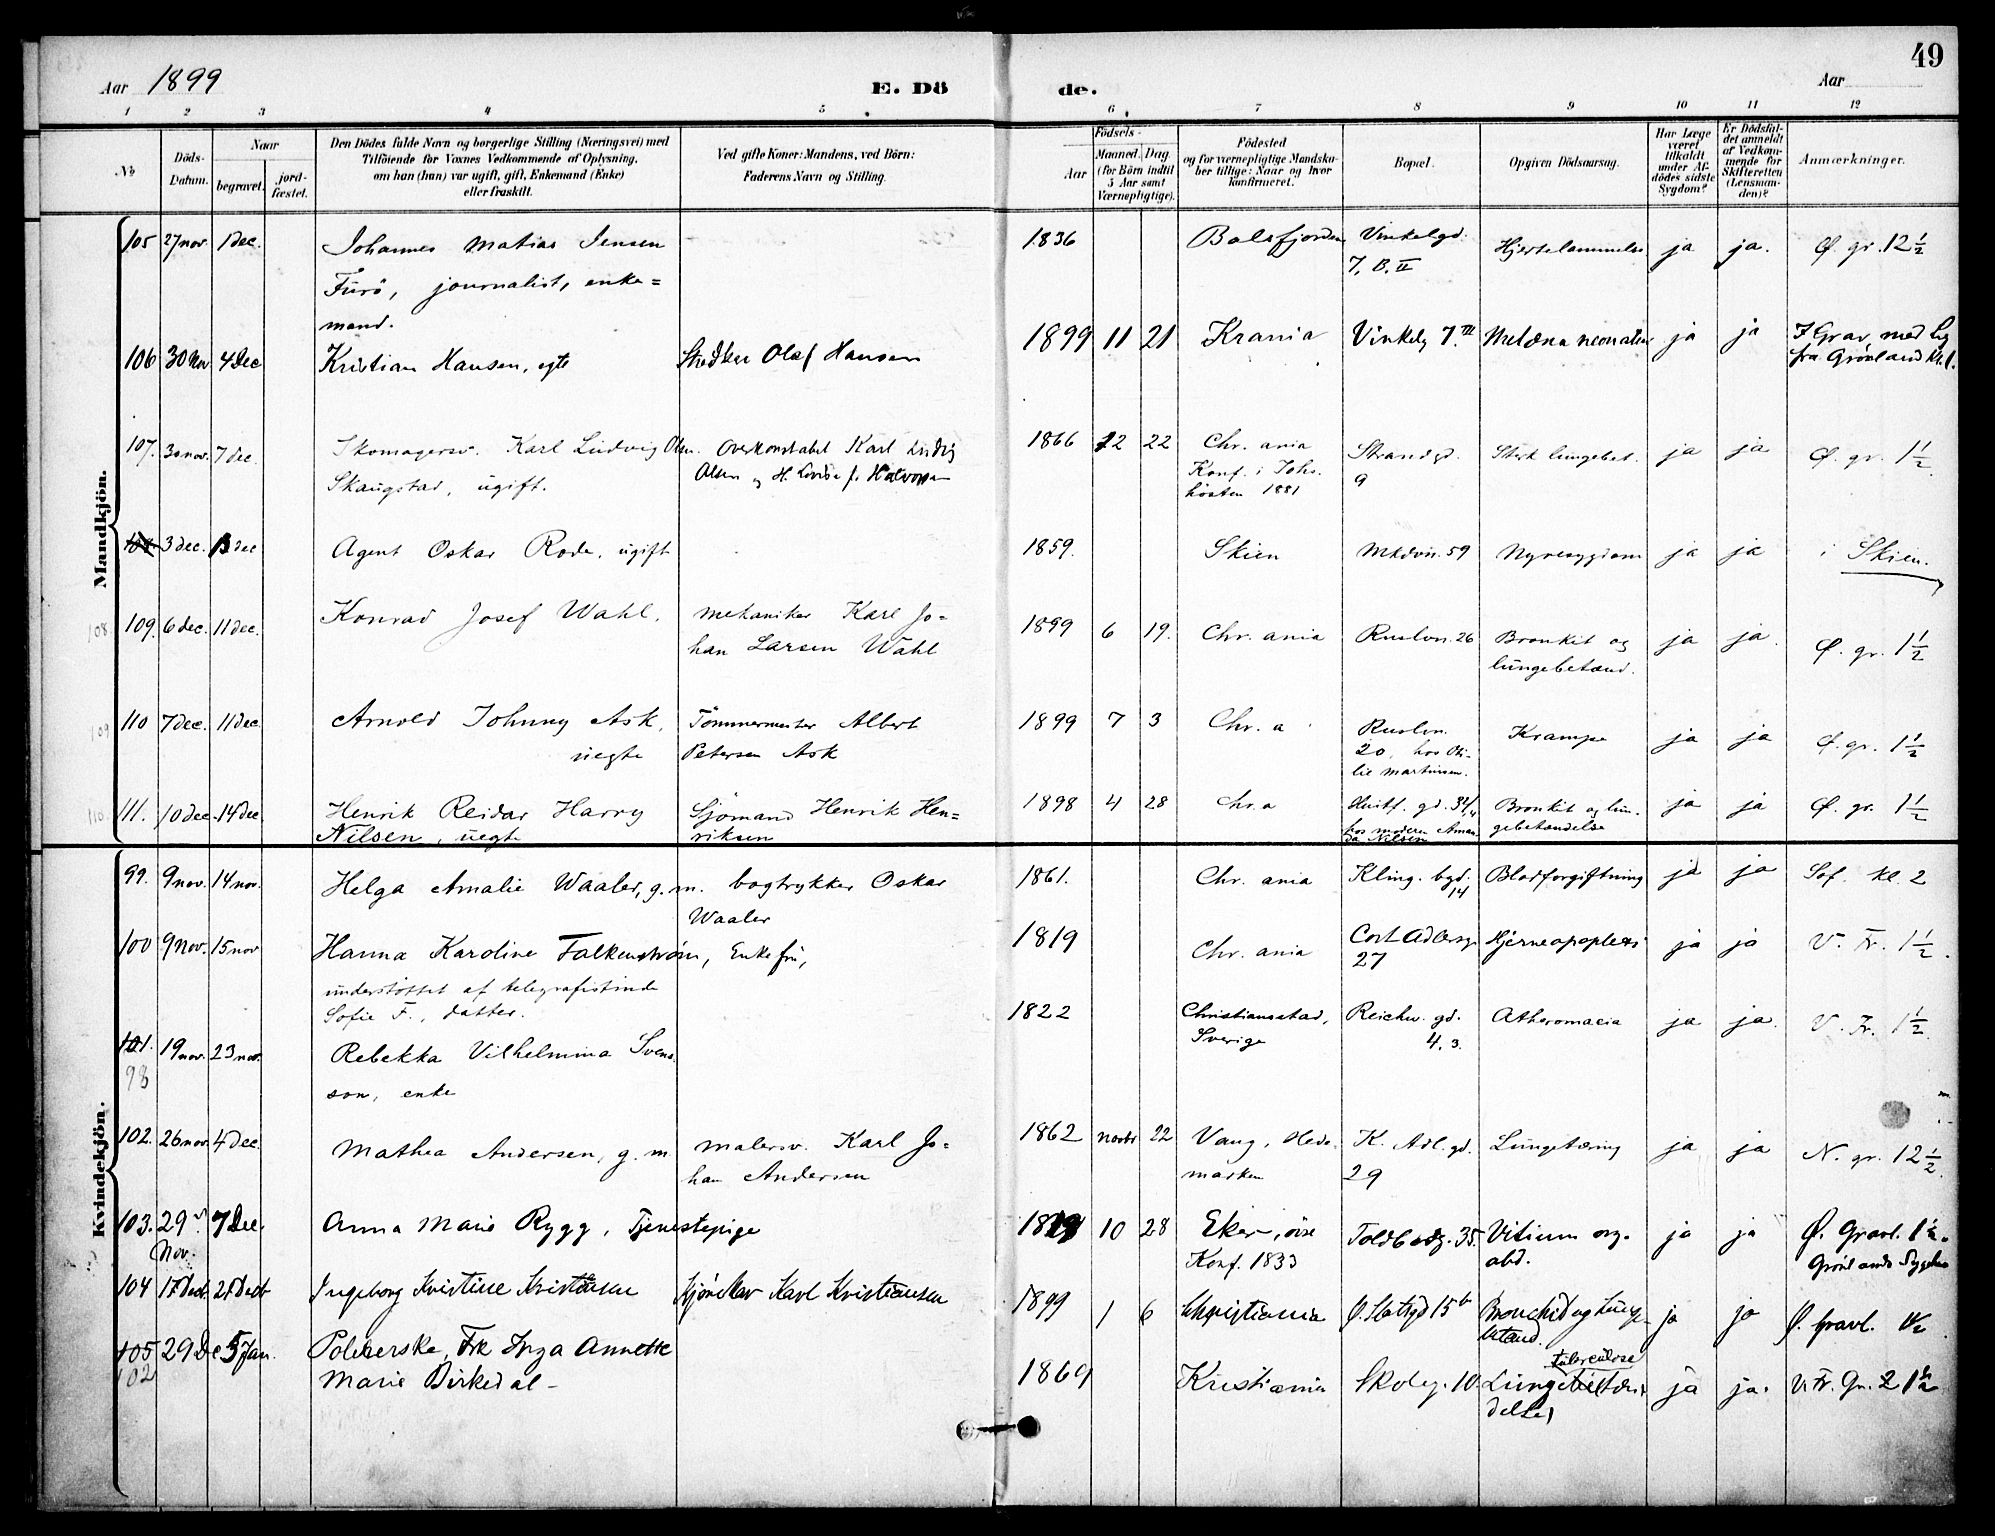 49
Aar 1899
E. Dö de.
Aar
1 2 3 4 5 6 7 8 9 10 11 12
No
Döds-Datum.
Naar begravet. jordfæstet.
Den Dödes fulde Navn og borgerlige Stilling (Næringsvei) med
Tilföiende for Voxnes Vedkommende af Oplysning,
om han (hun) var ugift, gift, Enkemand (Enke)
eller fraskilt.
Ved gifte Koner: Mandens, ved Börn:
Faderens Navn og Stilling.
Födsels-
Aar Maaned. Dag
(for Börn indtil
5 Aar samt
Værnepligtige).
Födested
og for værnepligtige Mandskaber tillige: Naar og hvor
konfirmeret.
Bopæl.
Opgiven Dödsaarsag.
Har Læge
været
tilkaldt
under Afdödes sidste
Sygdom?
Er Dödsfaldet anmeldt
af Vedkommende for
Skifteretten
(Lensmanden)?
Anmærkninger.
Mandkjön.
105 27 nov. 1 dec. Johannes Matias Jensen 1836 Balsfjorden Vinkelgd. Hjertelammelse ja ja. Ø. gr. 12½
Furö, journalist, enke= 7, B. II
mand.
106 30 Nov 4 Dec Kristian Hansen, egte Olaf Hansen 1899 11 21 Krania Vinkelg 7. III Melæna neonatum ja ja I Grav med Lig
fra Grönland Kl. 1.
107. 30 nov. 7 dec. Skomagersv. Karl Ludvig Olsn. Overkonstabel Karl Ludvig 1866 12 22 Chr. ania Strandgd. Sterk lungebet. ja ja Ø. gr. 1½
Skaugstad, ugift. Olsen og H. f. Halvorsen Konf. i Johs. 9
hösten 1881
108 3 dec. dec Agent Oskar Rode, ugift 1859. Skien 59 Nyresygdom ja ja i Skien.
108 109. 6 dec. 11 dec. Konrad Josef Wahl. mekaniker Karl Jo= 1899 6 19. Chr. ania Ruslvn. 26 Bronkit og ja ja. Ø. gr. 1½
han Larsen Wahl lungebetænd.
109 110 7 dec. 11 dec Arnold Johnny Ask, Tömmermester Albert 1899 7 3 Chr. a Ruslvn. Krampe ja ja Ø. gr. 1½
uegte Petersen Ask 20, hos Oti-
lie Martinsen.
110 111. 10 dec. 14 dec Henrik Reidar Harry Sjömand Henrik Hen= 1898 4 28 Chr. a Huitf. gd. 34/4 Bronkit og lun- ja ja Ø. gr. 1½
Nilsen, uegte riksen hos moderen Aman- gebetændelse
da Nilsen
Kvindekjön.
99. 9 nov. 14 nov. Helga Amalie Waaler, g. m. bogtrykker Oskar 1861. Chr. ania Kling. bgd. Blodforgiftning ja ja Sof. kl. 2
Waaler 14
100 9 nov. 15 nov Hanna Karoline Falkenström, Enkefru, 1819 Chr. ania Cort Adlersg. Hjerneapoplexi ja ja V. Fr. 1½.
understöttet af telegrafistinde 27
Sofie F., datter.
101. 19 nov. 23 nov. Rebekka Vilhelmina Svens- 1822 Christiansstad, Reichw. gd. Atheromacia ja ja. V. Fr. 1½
98 son, enke Sverige 4, 3.
102. 26 nov. 4 dec. Mathea Andersen, g. m. malersv. Karl Jo= 1862 novbr 22 Vang, Hede- K. Adl. gd. Lungetæring ja ja N. gr. 12½.
han Andersen marken 29
103. 29 7 Dec. Anna Marie Rygg, Tjenestepige 10 28 Eker, Toldbodg. 35. Vitium org. ja ja Ø. Gravl. 1½.
Nov. Konf. 1833 abd. Grönlands Sygehus
104 17 Decb. 21 Decb Ingeborg Kristine Kristiansen Karl Kristiansen 1899 1 6 Christiania Ø. Slotsgd 15b Bronchit og Lunge- ja ja Ø. Gravl. 1½
betænd.
105 29 De 5 Jan. Polererske, Frk Inga Annette 1869 Kristiania Skoleg. 10. Lungetuberculose ja ja. V. Fr. Gr. 2 1½
102 Marie Birkedal-